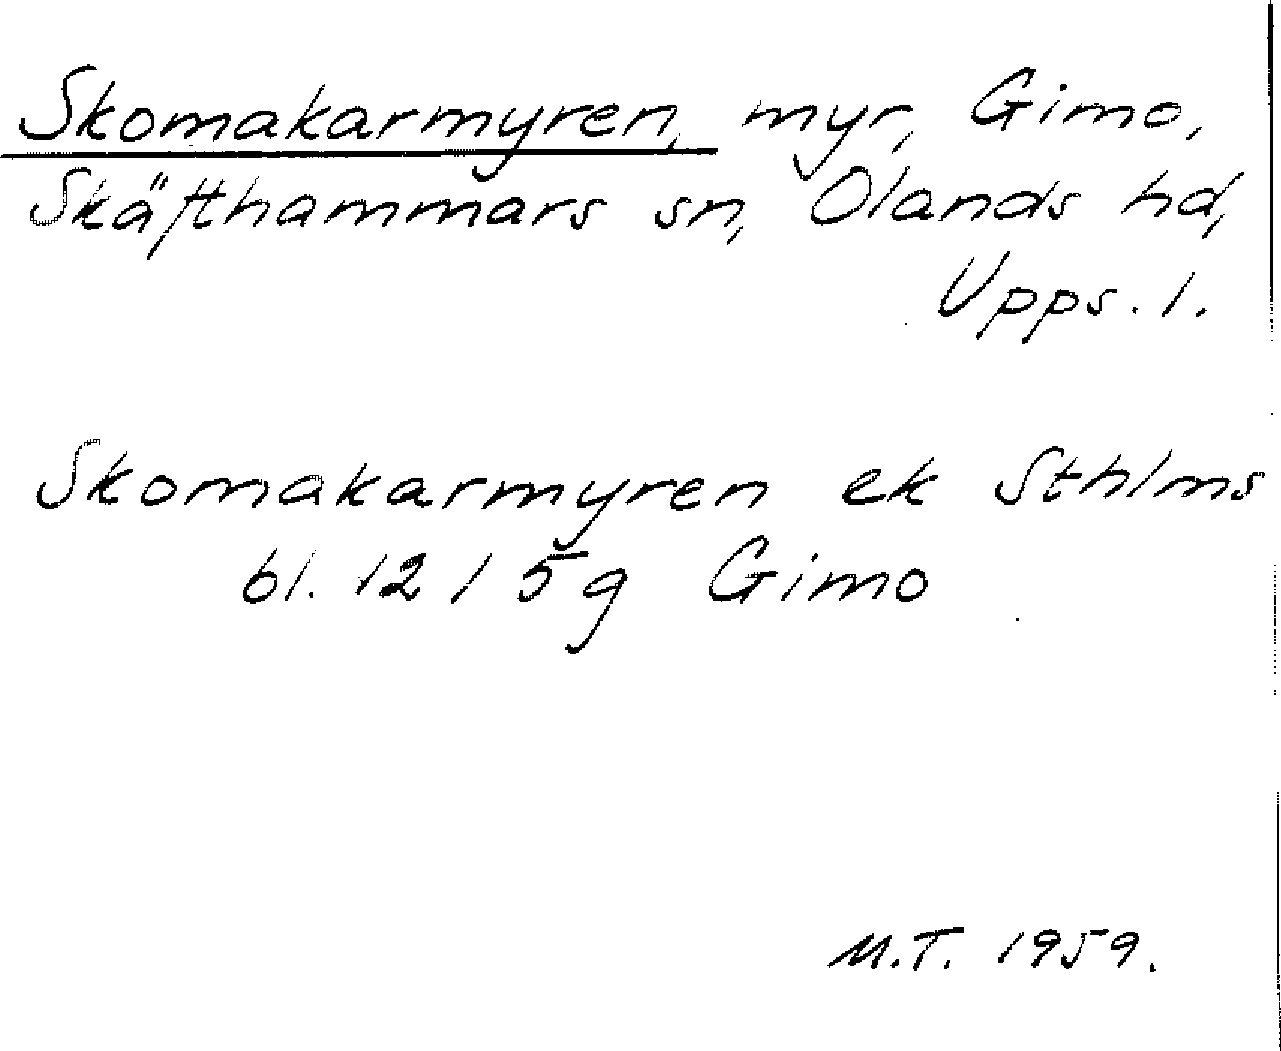 Skomakarmyren, myr, Gimo,
Skäfthammars sn, Olands hd,
Upps. l.
Skomakarmyren ek Sthlms
bl. 12 / 5 g Gimo
M.T. 1959.